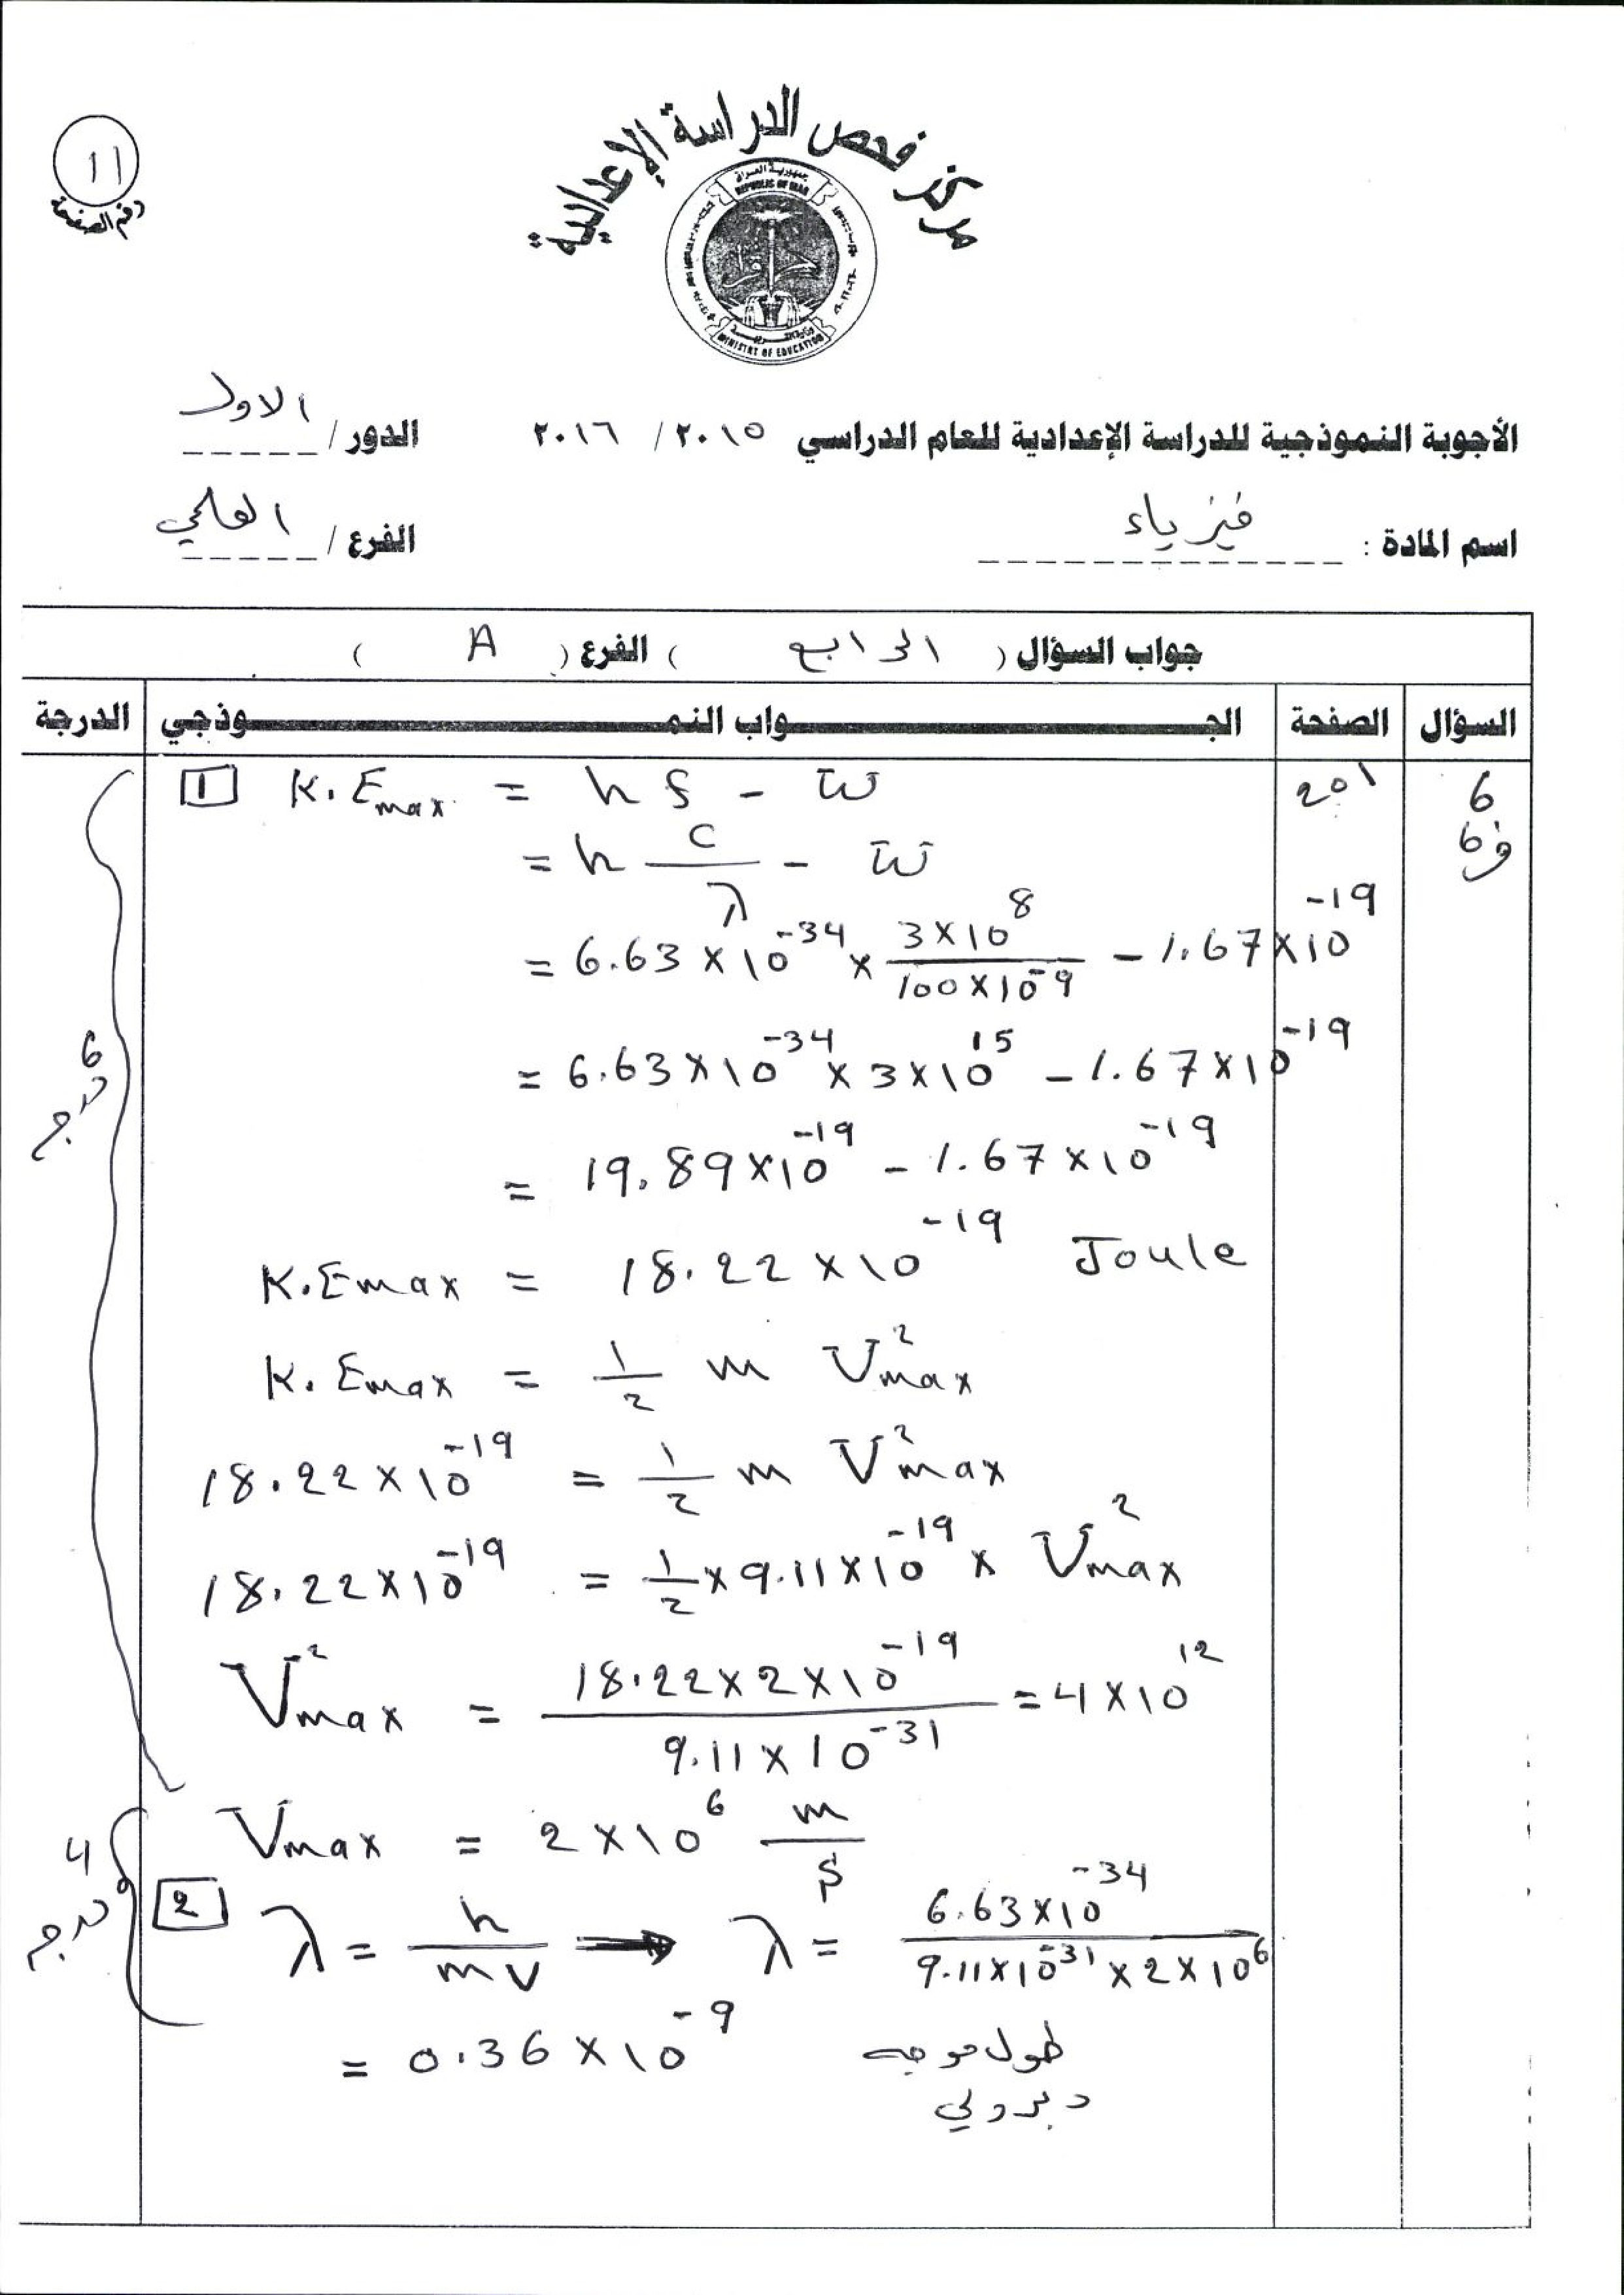 11
رقم الصفحة
مركز فحص الدراسة الإعدادية
جمهورية العراق
REPUBLIC OF IRAQ
MINISTRY OF EDUCATION
الأجوبة النموذجية للدراسة الإعدادية للعام الدراسي ٢٠١٥ / ٢٠١٦ الدور / الاول
اسم المادة : فيزياء الفرع / العلمي
جواب السؤال ( الرابع ) الفرع ( A )
السؤال الصفحة الجـــواب النمـــوذجي الدرجة
6 201 [1] K.Emax = hf - w
ف6 = h c/λ - w
= 6.63×10^-34 × 3×10^8 / 100×10^-9 - 1.67×10^-19
= 6.63×10^-34 × 3×10^15 - 1.67×10^-19
6 درج
= 19.89×10^-19 - 1.67×10^-19
K.Emax = 18.22×10^-19 Joule
K.Emax = 1/2 m V²max
18.22×10^-19 = 1/2 m V²max
18.22×10^-19 = 1/2 × 9.11×10^-19 × V²max
V²max = 18.22×2×10^-19 / 9.11×10^-31 = 4×10^12
Vmax = 2×10^6 m/s
4 درج
[2] λ = h/mv ⟹ λ = 6.63×10^-34 / 9.11×10^-31 × 2×10^6
= 0.36×10^-9 طول موجة
دبرولي